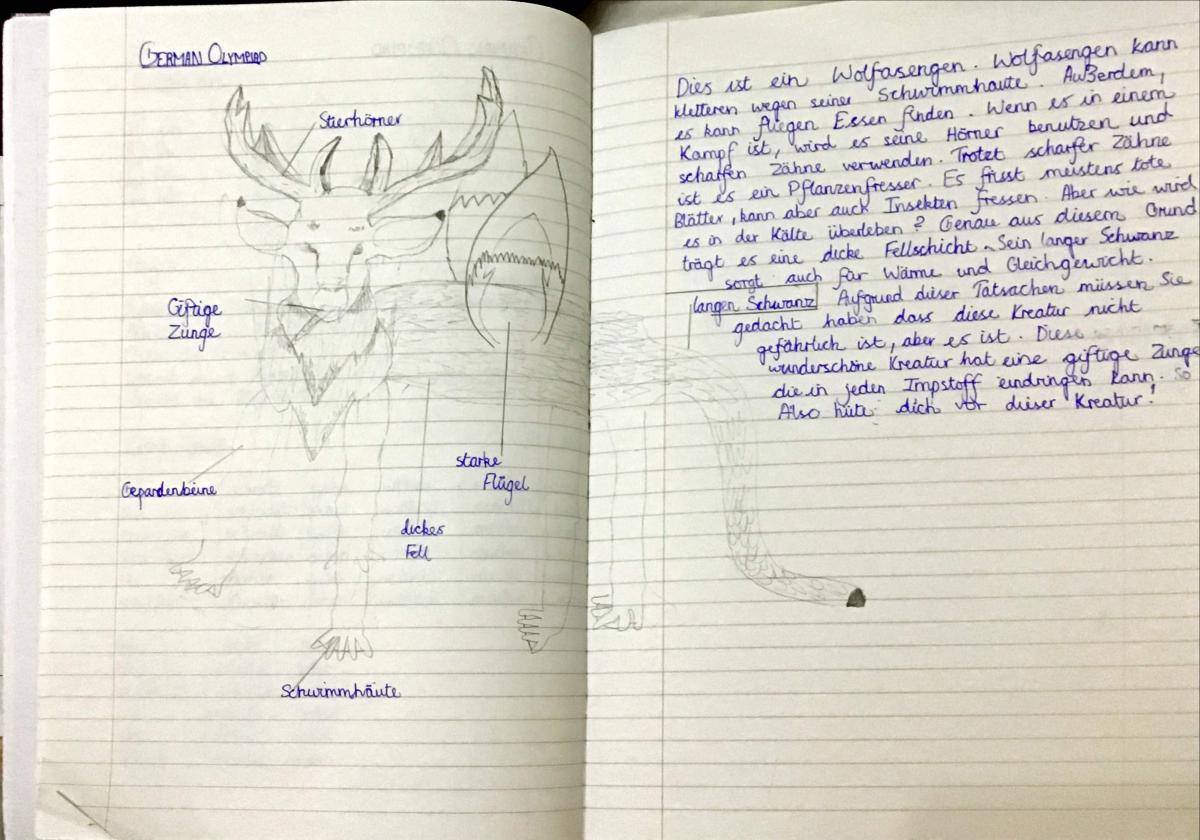 GERMAN OLYMPIAD
Stierhörner
Giftige
Zunge
Gepardenbeine
starke
Flügel
dickes
Fell
Schwimmhäute
Dies ist ein Wolfasengen. Wolfasengen kann
kletteren wegen seiner Schwimmhaute. Außerdem,
es kann fliegen Essen finden. Wenn es in einem
Kampf ist, wird es seine Hörner benutzen und
scharfen Zähne verwenden. Trotzt scharfer Zähne
ist es ein Pflanzenfresser. Es frisst meistens tote
Blätter, kann aber auch Insekten fressen. Aber wie wird
es in der Kälte überleben? Genau aus diesem Grund
trägt es eine dicke Fellschicht. Sein langer Schwanz
sorgt auch für Wärme und Gleichgewicht.
langen Schwanz
Aufgrund dieser Tatsachen müssen Sie
gedacht haben dass diese Kreatur nicht
gefährlich ist, aber es ist. Diese
wunderschöne Kreatur hat eine giftige Zunge
die in jeden Impstoff eindringen kann. So
Also hüte dich vor dieser Kreatur!